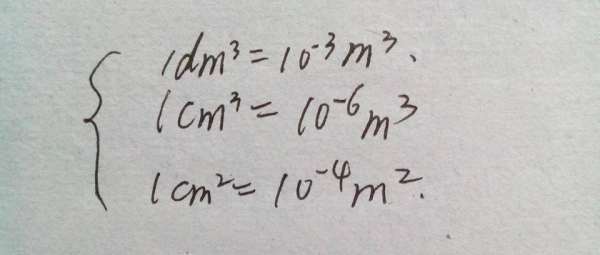 1dm³=10⁻³m³.
1cm³=10⁻⁶m³
1cm²=10⁻⁴m².